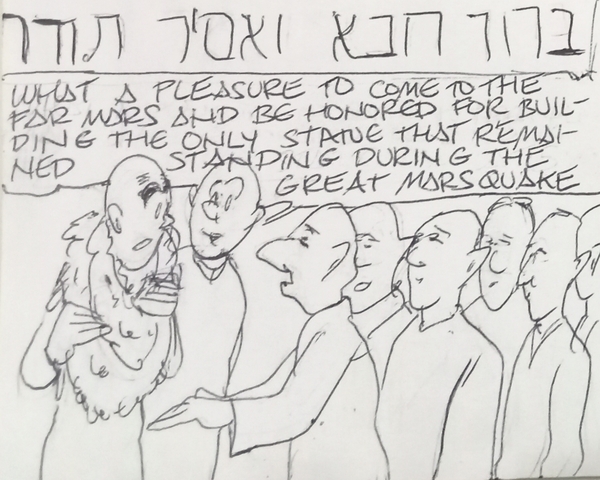 ברוך הבא ואסיר תודה
WHAT A PLEASURE TO COME TO THE
FAR MARS AND BE HONORED FOR BUIL-
DING THE ONLY STATUE THAT REMAI-
NED STANDING DURING THE
GREAT MARSQUAKE